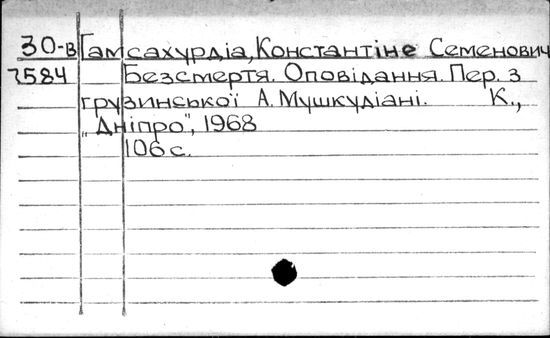 30-в Гамсахурдіа, Константіне Семенович
7584 Безсмертя. Оповідання. Пер. з
грузинської А. Мушкудіані. К.,
„Дніпро", 1968
106 с.